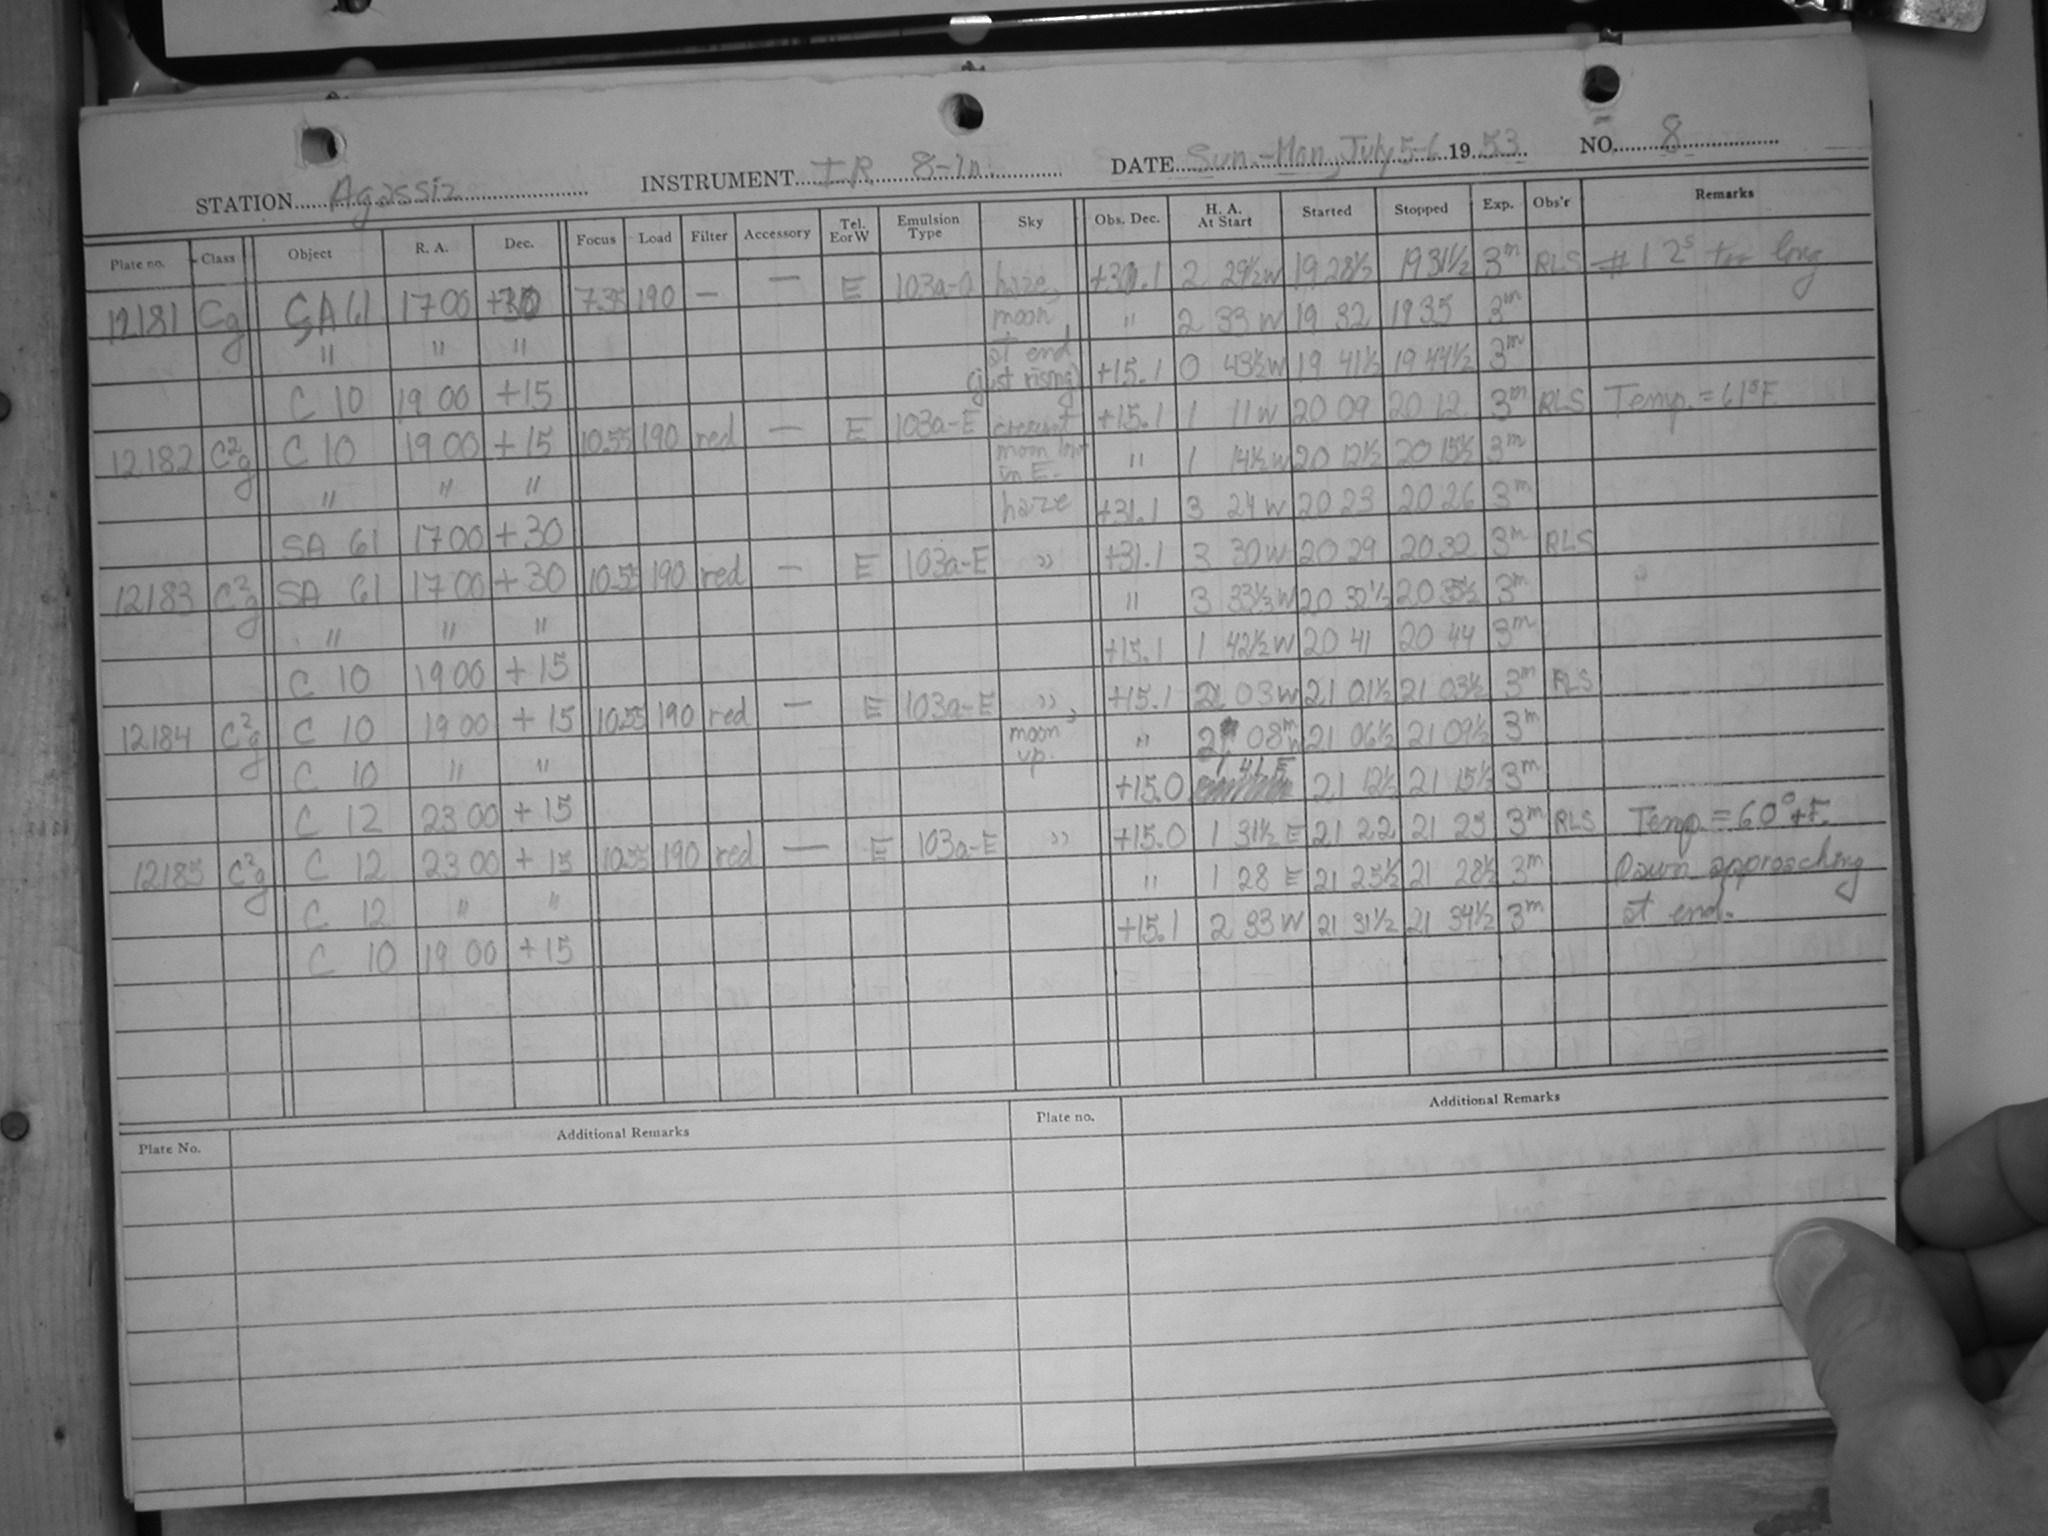 STATION Agassiz INSTRUMENT IR 8-in. DATE Sun.-Mon, July 5-6 1953 NO. 8
Plate no. Class Object R. A. Dec. Focus Load Filter Accessory Tel. E or W Emulsion Type Sky Obs. Dec. H. A. At Start Started Stopped Exp. Obs'r Remarks
12181 Cg SA 61 17 00 +30 7.35 190 — — E 103a-O haze, +31.1 2 29½ W 19 28½ 19 31½ 3m RLS #1 2s too long
" " " moon " 2 33 W 19 32 19 35 3m
C 10 19 00 +15 at end (just rising) +15.1 0 43½ W 19 41½ 19 44½ 3m
12182 C²g C 10 19 00 +15 10.55 190 red — E 103a-E crescent +15.1 1 11 W 20 09 20 12 3m RLS Temp. = 61°F
" " " moon low in E. " 1 14½ W 20 12½ 20 15½ 3m
SA 61 17 00 +30 haze +31.1 3 24 W 20 23 20 26 3m
12183 C²g SA 61 17 00 +30 10.55 190 red — E 103a-E " +31.1 3 30 W 20 29 20 32 3m RLS
" " " " 3 33½ W 20 32½ 20 35½ 3m
C 10 19 00 +15 +15.1 1 42½ W 20 41 20 44 3m
12184 C²g C 10 19 00 +15 10.55 190 red — E 103a-E ", +15.1 2 03 W 21 01½ 21 03½ 3m RLS
C 10 " " moon up. " 2 08 W 21 06½ 21 09½ 3m
C 12 23 00 +15 +15.0 1 41 E 21 12½ 21 15½ 3m
12185 C²g C 12 23 00 +15 10.55 190 red — E 103a-E " +15.0 1 31½ E 21 22 21 25 3m RLS Temp. = 60°F.
C 12 " " " 1 28 E 21 25½ 21 28½ 3m Dawn approaching
C 10 19 00 +15 +15.1 2 33 W 21 31½ 21 34½ 3m at end.
Plate No. Additional Remarks Plate no. Additional Remarks